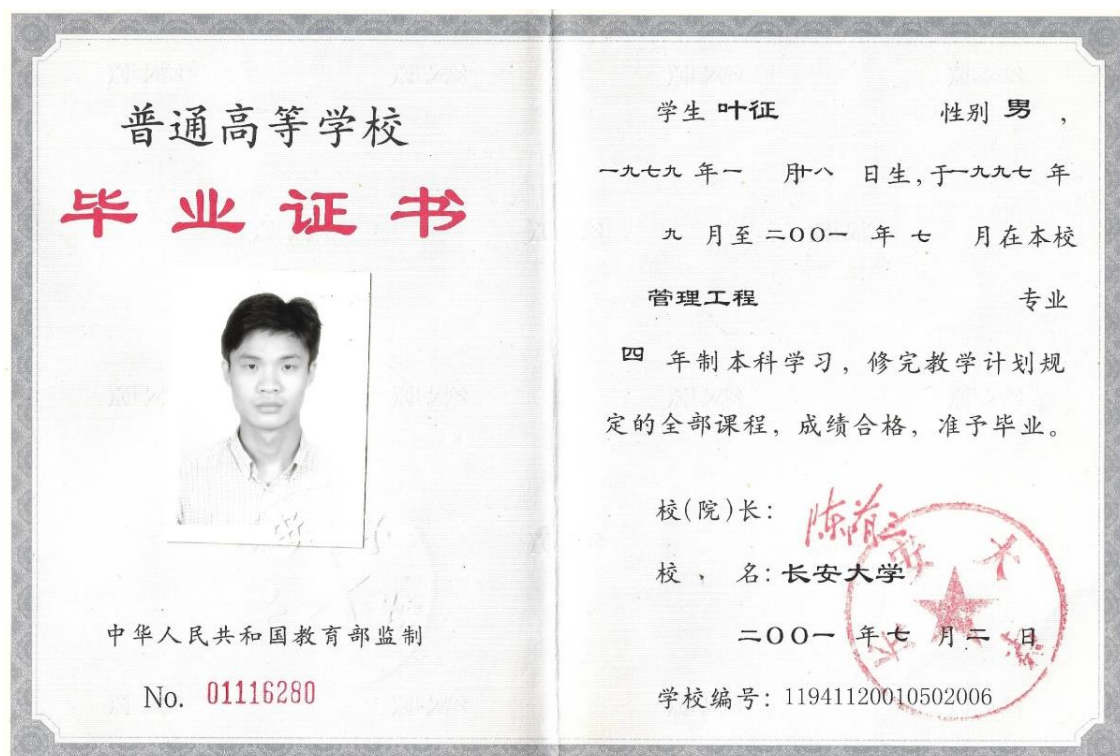 普通高等学校
毕业证书
中华人民共和国教育部监制
No. 01116280
学生 叶征 性别 男 ,
一九七九 年 一 月 十八 日生,于 一九九七 年
九 月至 二〇〇一 年 七 月在本校
管理工程 专业
四 年制本科学习,修完教学计划规
定的全部课程,成绩合格,准予毕业。
校(院)长:
校 、 名: 长安大学
二〇〇一 年 七 月 二 日
学校编号: 11941120010502006
长安大学